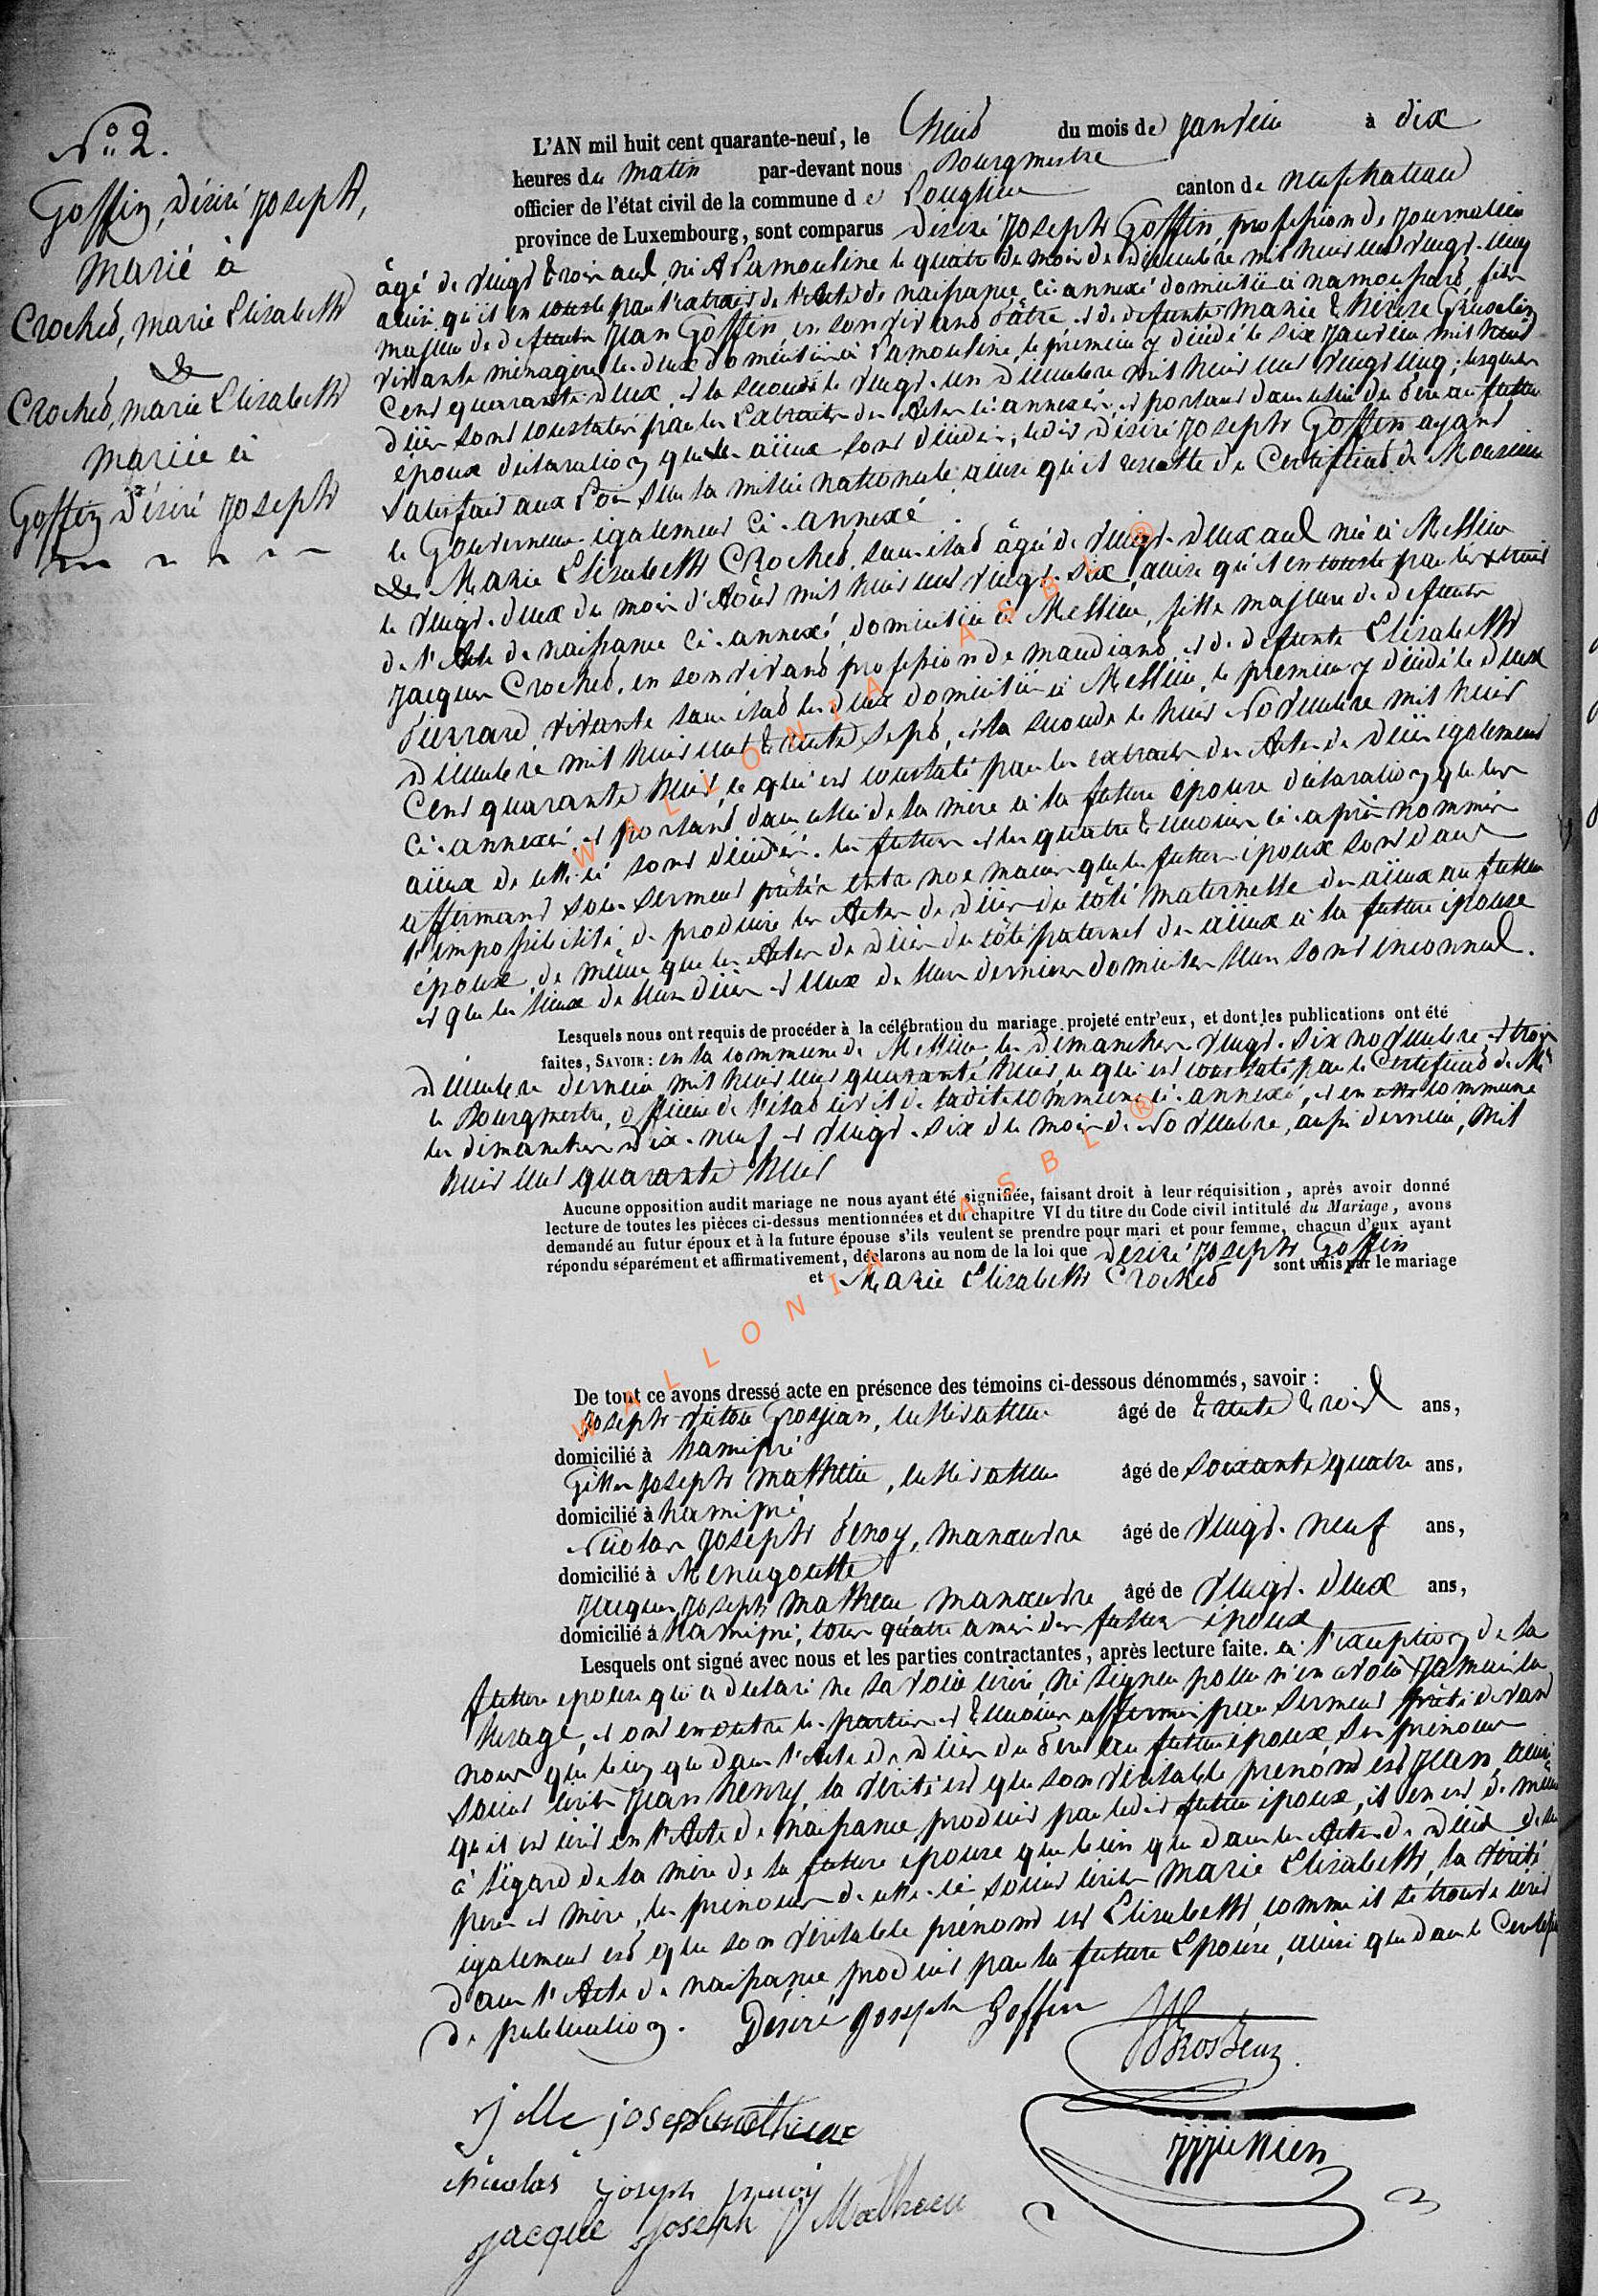 N° 2.
Goffin, Désiré Joseph,
Marié à
Crochet, Marie Elisabeth
&
Crochet, Marie Elisabeth
Mariée à
Goffin Désiré Joseph
L'AN mil huit cent quarante-neuf, le huit du mois de janvier à dix
heures du matin par-devant nous Bourgmestre
officier de l'état civil de la commune de Longlier canton de Neufchateau
province de Luxembourg, sont comparus Désiré Joseph Goffin profession de journalier
âgé de vingt trois ans, né à Lamouline le quatre du mois de Décembre mil huit cent vingt-cinq
ainsi qu'il en conste par l'extrait de l'Acte de naissance ci-annexé domicilié à namoussart, fils
majeur de defunts Jean Goffin en son vivant pâtre et de defunte Marie Thérèse
vivante ménagère les deux domiciliés à Lamouline, le premier y décédé le six janvier mil huit
Cent quarante deux, et la seconde le vingt-un Décembre mil huit cent vingt cinq; lesquels
Décès sont constatés par les Extraits des Actes ci-annexés, et portant dans celui du Père au futur
époux déclaration que les aïeux sont décédés; ledit Désiré Joseph Goffin ayant
satisfait aux Lois sur la milice nationale, ainsi qu'il resulte du Certificat de Monsieur
le Gouverneur également Ci-annexé.
& Marie Elisabeth Crochet, sans état âgée de vingt-deux ans née à Mellier
le vingt-deux du mois d'Août mil huit cent vingt-six, ainsi qu'il en conste par les extrait
de l'Acte de naissance Ci-annexé, domiciliée à Mellier, fille majeure de defunts
Jacques Crochet, en son vivant profession de mandiant, et de defunte Elisabeth
Pierrard, vivante sans état les deux domiciliés à Mellier, le premier y décédé le deux
Décembre mil huit cent trente sept, et la seconde le huit Novembre mil huit
Cent quarante huit, ce qui est constaté par les extraits des Actes de Décès egalement
Ci-annexés et portant dans celui de la mère à la future épouse déclaration que les
aïeux de celle-ci sont décédés. les futurs et les quatre témoins ci-après nommés
affirmant sous serment prêtés entre nos mains que les futurs époux sont dans
l'impossibilité de produire les Actes de Décès du côté maternelle des aïeux au futur
époux, de même que les Actes de Décès du côté paternel des aïeux à la future épouse
et que les lieux de leurs décès et ceux de leurs derniers domiciles leur sont inconnus.
Lesquels nous ont requis de procéder à la célébration du mariage projeté entr'eux, et dont les publications ont été
faites, SAVOIR: en la commune de Mellier les Dimanches vingt-six novembre et trois
Décembre dernier mil huit cent quarante huit, ce qui est constaté par le Certificat de Mr
le Bourgmestre, officier de l'état civil de ladite commune ci-annexé, et en cette commune
les dimanches dix-neuf et vingt-six du mois de Novembre, aussi dernier, mil
huit cent quarante huit
Aucune opposition audit mariage ne nous ayant été signifiée, faisant droit à leur réquisition, après avoir donné
lecture de toutes les pièces ci-dessus mentionnées et du chapitre VI du titre du Code civil intitulé du Mariage, avons
demandé au futur époux et à la future épouse s'ils veulent se prendre pour mari et pour femme, chacun d'eux ayant
répondu séparément et affirmativement, déclarons au nom de la loi que Désiré Joseph Goffin
et Marie Elisabeth Crochet sont unis par le mariage
De tout ce avons dressé acte en présence des témoins ci-dessous dénommés, savoir :
Joseph Victor Grosjean, cultivateur âgé de trente trois ans,
domicilié à hamipré
Gille Joseph Mathieu, cultivateur âgé de soixante quatre ans,
domicilié à hamipré
Nicolas Joseph Penoy, manœuvre âgé de vingt-neuf ans,
domicilié à Menugoutte
Jacques Joseph Mathieu manœuvre âgé de vingt-deux ans,
domicilié à hamipré, tous quatre amis des futurs époux
Lesquels ont signé avec nous et les parties contractantes, après lecture faite. à l'exception de la
future épouse qui a déclaré ne savoir écrire, ni signer pour n'en avoir jamais eu
l'usage, et ont en outre les parties et témoins affirmés par serment prêté devant
nous que bien que dans l'Acte de Décès du Père au futur époux, ses prénoms
soient écrits Jean henry, la vérité est que son véritable prénom est Jean, ainsi
qu'il est écrit en l'Acte de naissance produit par ledit futur époux, il en est de même
à l'égard de la mère de la future épouse que bien que dans les Actes de Décès de ses
père et mère, les prénoms de celle-ci soient écrits Marie Elisabeth, la vérité
également est que son véritable prénom est Elisabeth, comme il se trouve écrit
dans l'Acte de naissance produit par la future Epouse, ainsi que dans le Certificat
de publication. Désiré Joseph Goffin
jille joseph mathieux
Nicolas Joseph penoy
jacque Joseph Mathieu
WALLONIA ASBL ®
WALLONIA ASBL ®